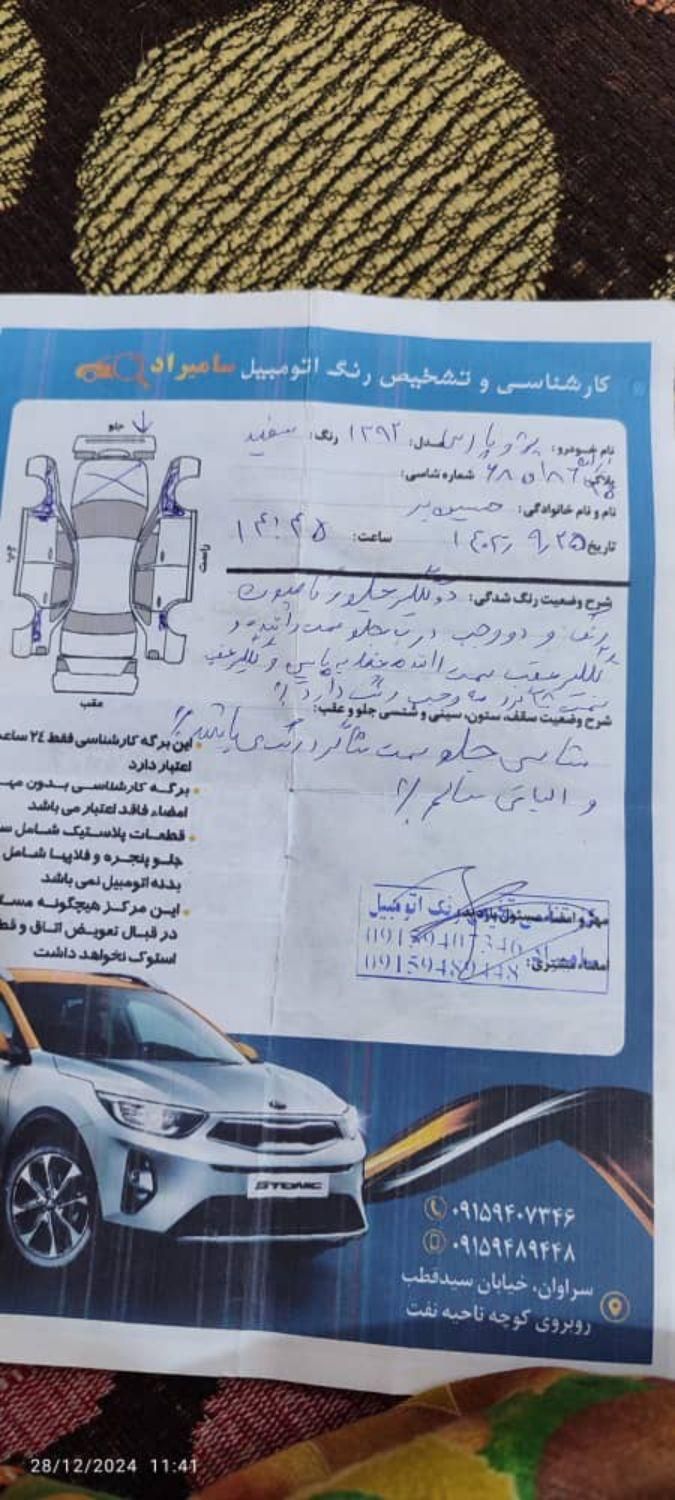 کارشناسی و تشخیص رنگ اتومبیل سامیراد
جلو
چپ
راست
عقب
نام خودرو: پژو پارس مدل: ۱۳۹۲ رنگ: سفید
پلاک: شماره شاسی:
نام و نام خانوادگی:
تاریخ: ۱۴۰۳/۹/۲۵ ساعت: ۱۴:۴۵
شرح وضعیت رنگ شدگی: دو گلگیر جلو و کاپوت
رنگ و دو وجب درب جلو سمت راننده و
گلگیر عقب سمت راننده و گلگیر عقب
سمت شاگرد وجب رنگ دارد
شرح وضعیت سقف، ستون، سینی و شسی جلو و عقب:
شاسی جلو سمت شاگرد رنگ می باشد
و الباقی سالم
این برگه کارشناسی فقط ۲۴ ساعت
اعتبار دارد
برگه کارشناسی بدون مهر
امضاء فاقد اعتبار می باشد
قطعات پلاستیک شامل
جلو پنجره و فلاپها شامل
بدنه اتومبیل نمی باشد
این مرکز هیچگونه
در قبال تعویض اتاق و
استوک نخواهد داشت
مهر و امضاء مسئول بازدید:
رنگ اتومبیل
09159407346
امضاء مشتری:
09159489448
STONIC
۰۹۱۵۹۴۰۷۳۴۶
۰۹۱۵۹۴۸۹۴۴۸
سراوان، خیابان سیدقطب
روبروی کوچه ناحیه نفت
28/12/2024 11:41